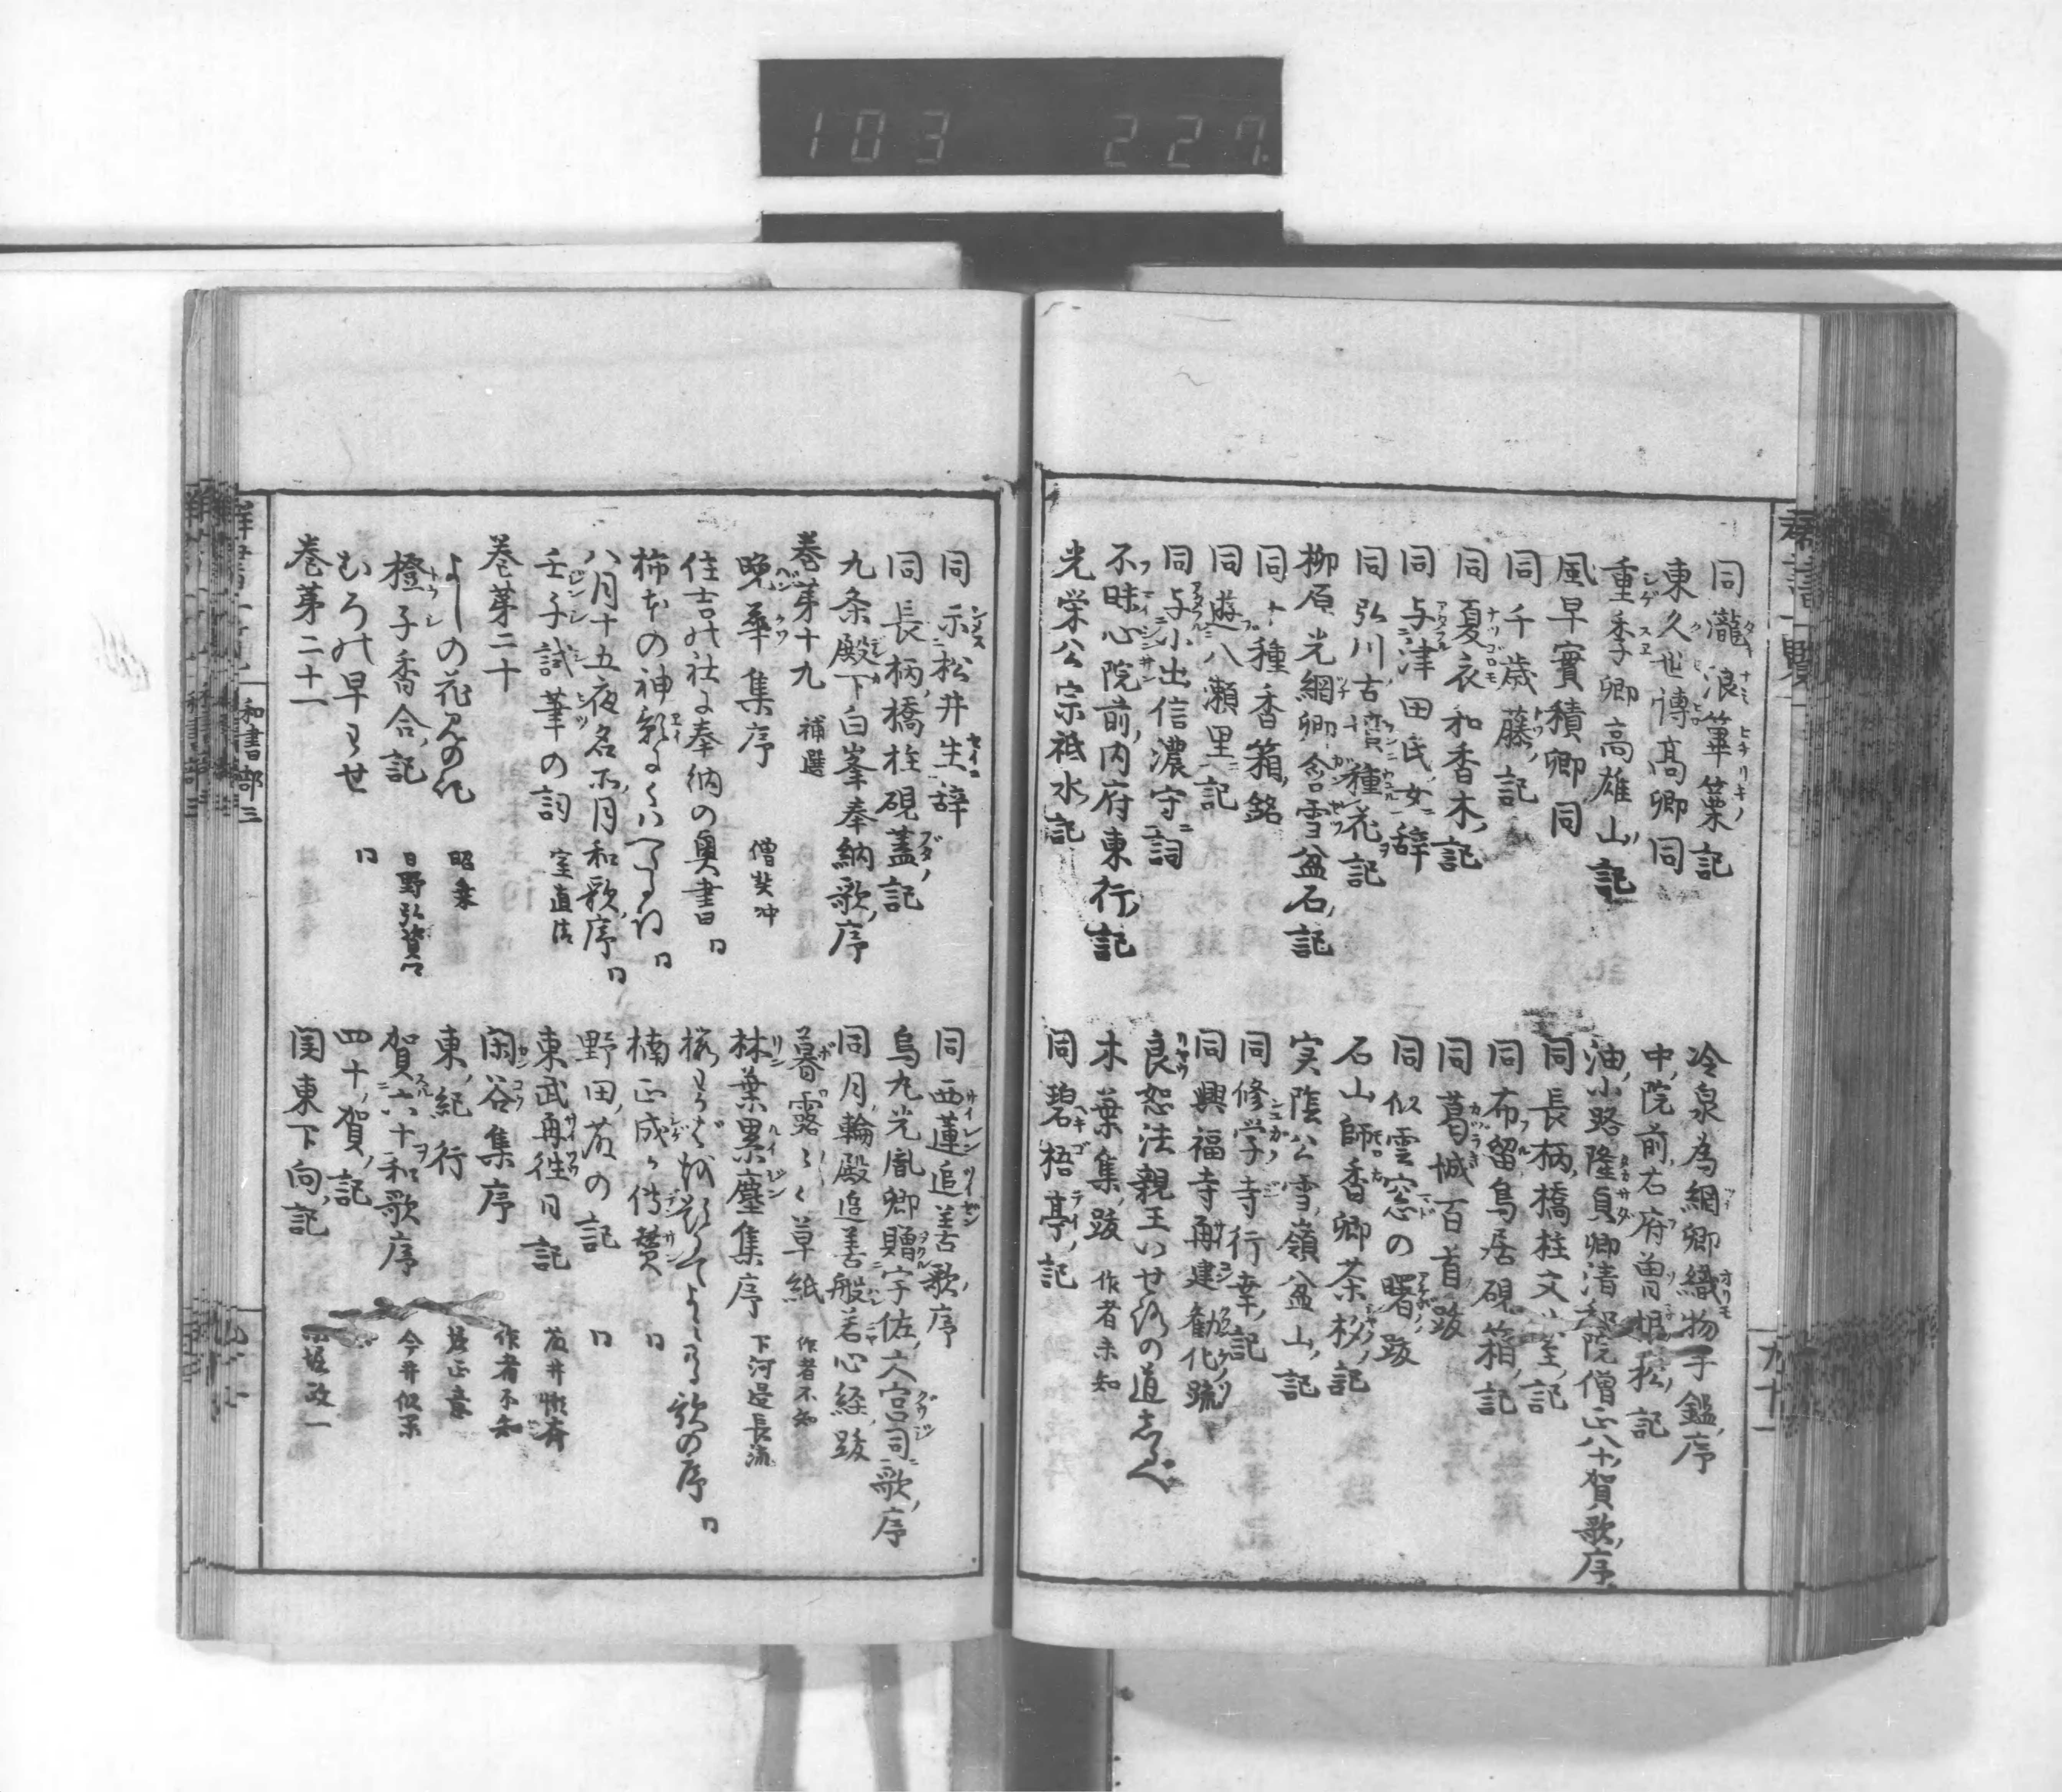 103 227
群書一覧
九十一
同瀧浪篳篥記
東久世博高卿同
重季卿高雄山記
風早實積卿同
同千歳藤記
同夏衣和香木記
同与津田氏女辞
同弘川古墳種花記
柳原光綱卿含雪盆石記
同十種香箱銘
同遊八瀬里記
同与小出信濃守詞
不昧心院前内府東行記
光栄公宗祇水記
冷泉為綱卿織物手鑑序
中院前右府曽根松記
油小路隆貞卿清和院僧正八十賀歌序
同長柄橋柱文台記
同布留鳥居硯箱記
同葛城百首跋
同似雲窓の曙跋
石山師香卿茶杓記
実陰公雪嶺盆山記
同修学寺行幸記
同興福寺再建勧化疏
良恕法親王いせ路の道志るべ
木葉集跋 作者未知
同碧梧亭記
同示松井生辞
同長柄橋柱硯蓋記
九条殿下白峯奉納歌序
巻第十九 補選
晩華集序 僧契冲
住吉の社に奉納の奥書 同
八月十五夜名所月和歌序 同
壬子試筆の詞 室直清
巻第二十
よしの花見の記 昭乗
橙子香合記 日野弘資
むろの早わせ 同
巻第二十一
同西蓮追善歌序
烏丸光胤卿贈宇佐大宮司歌序
同月輪殿追善般若心経跋
暮露々々草紙 作者不知
林葉累塵集序 下河邊長流
楠正成か伝賛 同
野田藤の記 同
東武再徃日記
閑谷集序 作者不知
東紀行
賀六十和歌序 今井似閑
四十賀記
関東下向記
和書部三